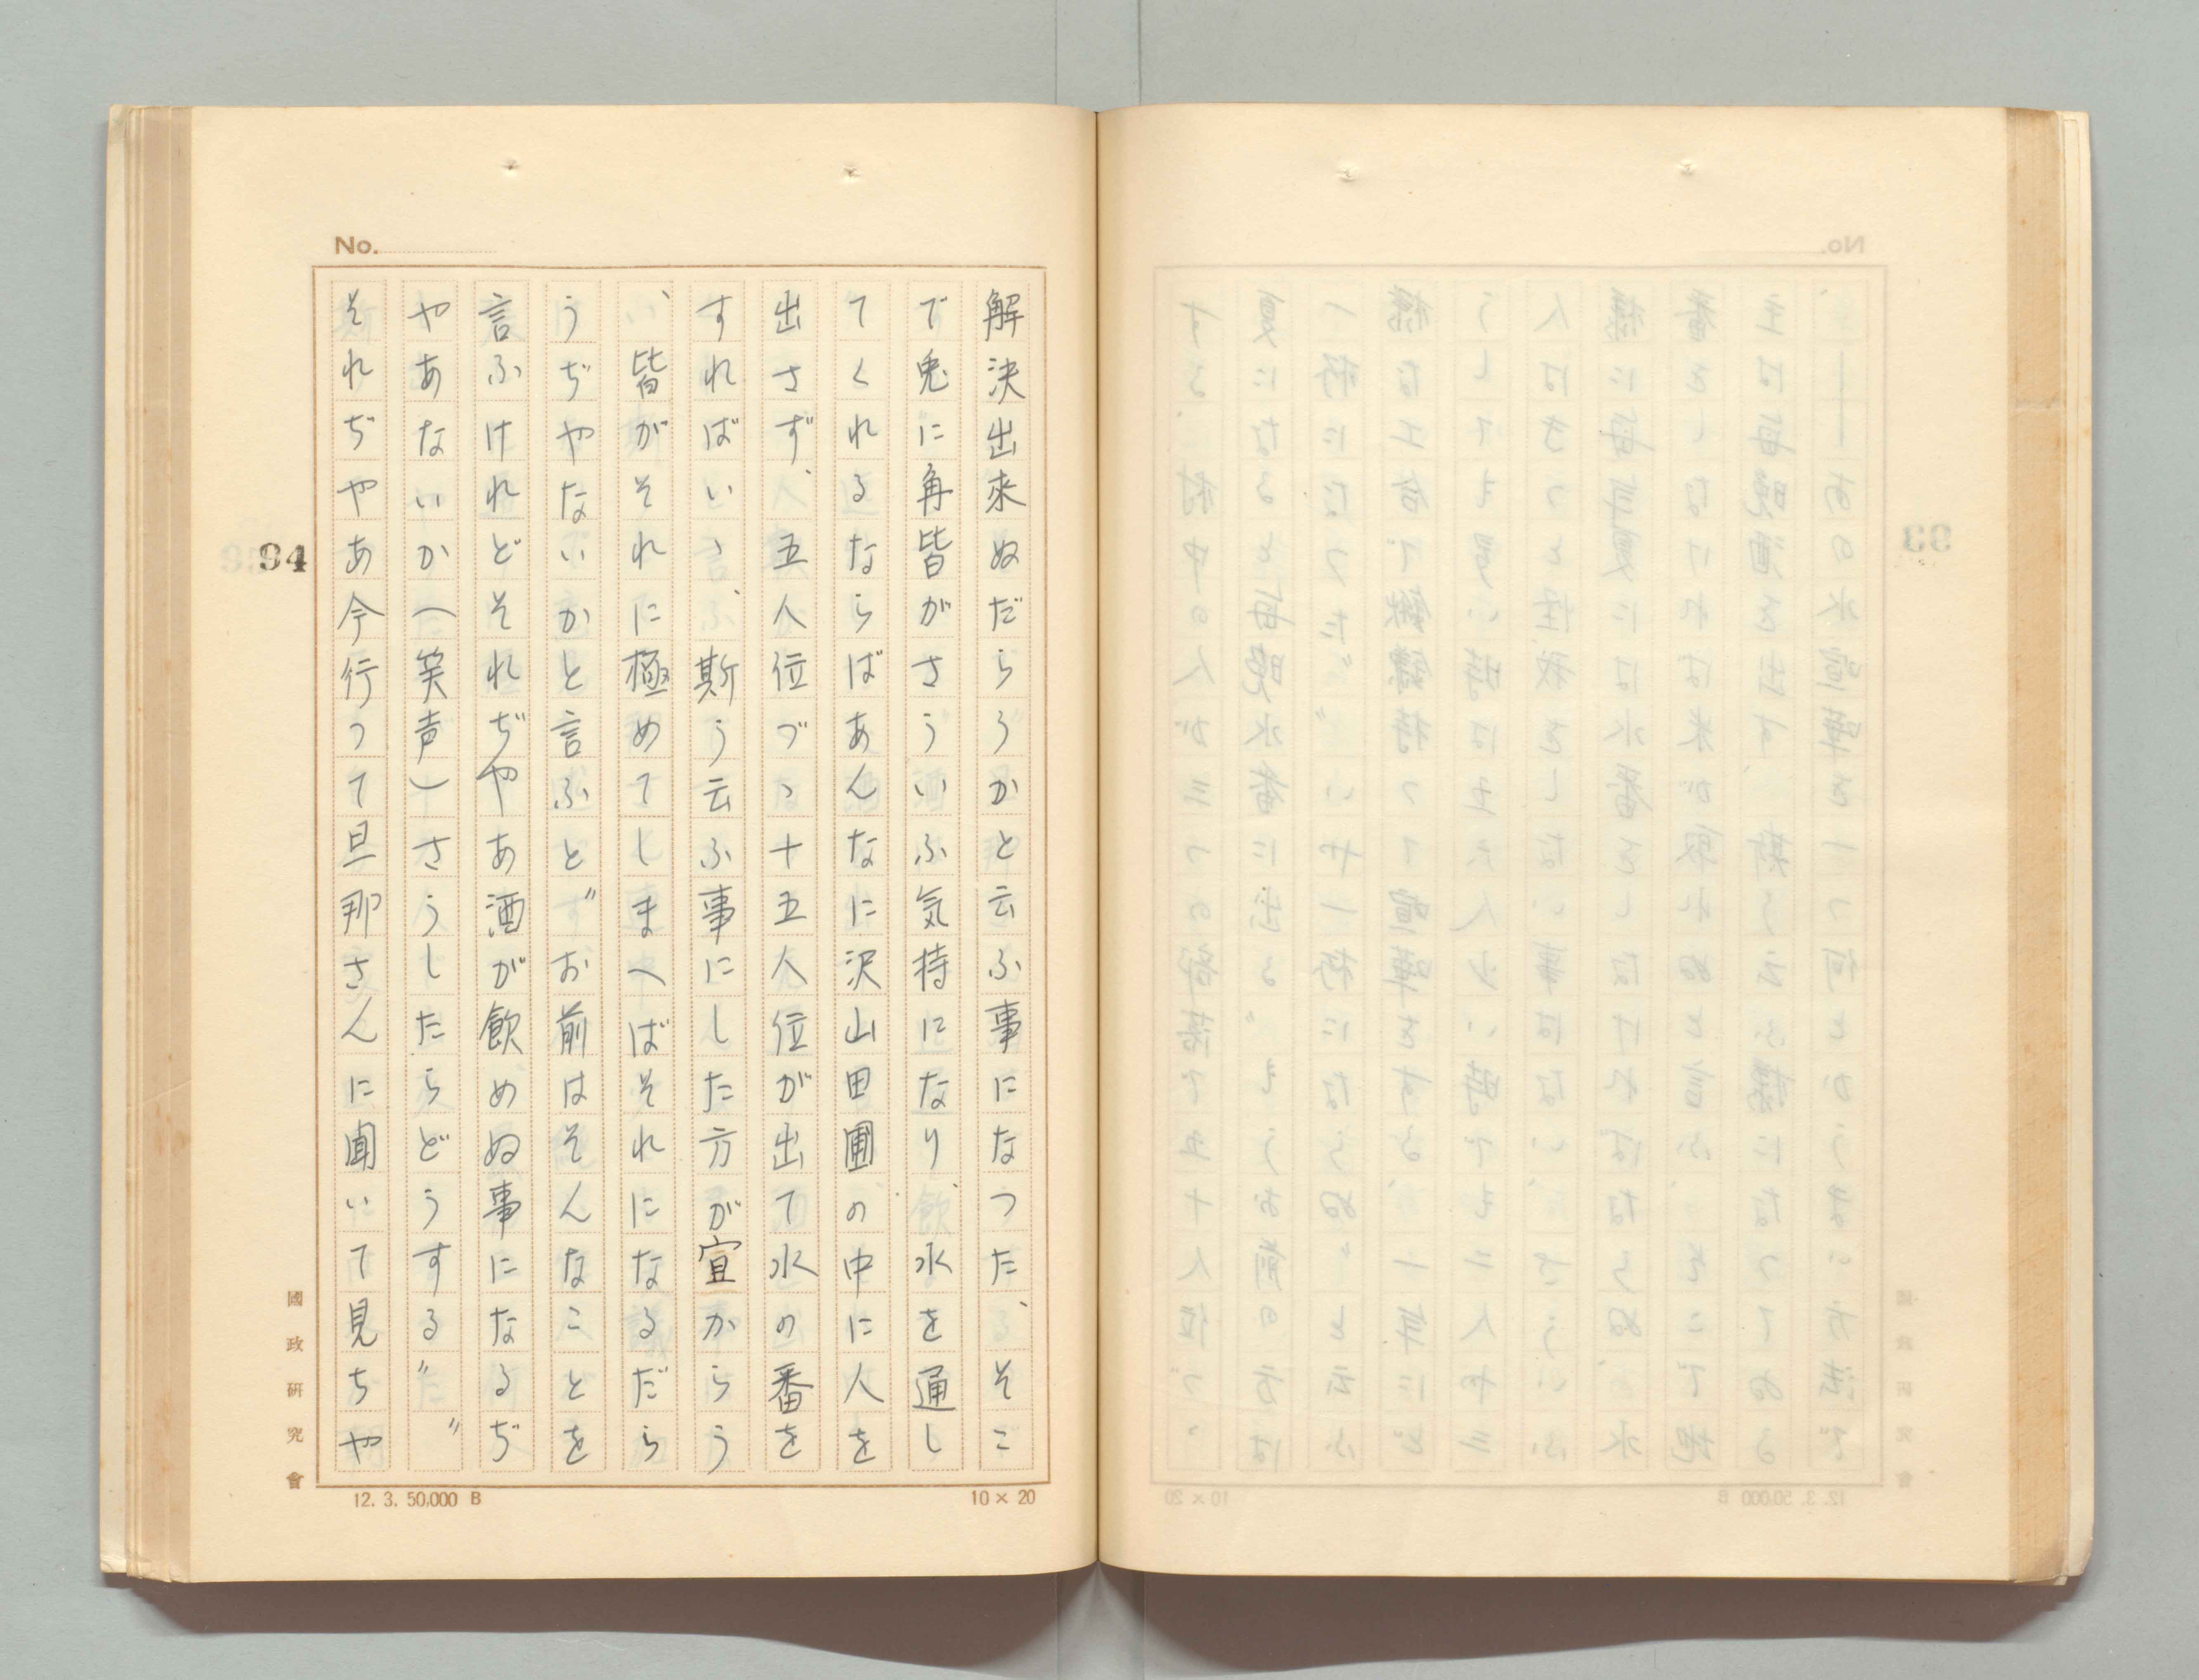 No.
解決出来ぬだらうかと云ふ事になつた、そこ
で兎に角皆がさういふ気持になり、水を通し
てくれるならばあんなに沢山田圃の中に人を
出さず、五人位づゝ十五人位が出て水の番を
すればいゝ、斯う云ふ事にした方が宜からう
、皆がそれに極めてしまへばそれになるだら
うぢやないかと言ふと〃お前はそんなことを
言ふけれどそれぢやあ酒が飲めぬ事になるぢ
やあないか（笑声）さうしたらどうする〃〃
それぢやあ今行つて旦那さんに聞いて見ちや
94
國政研究會
12. 3. 50,000 B
10×20